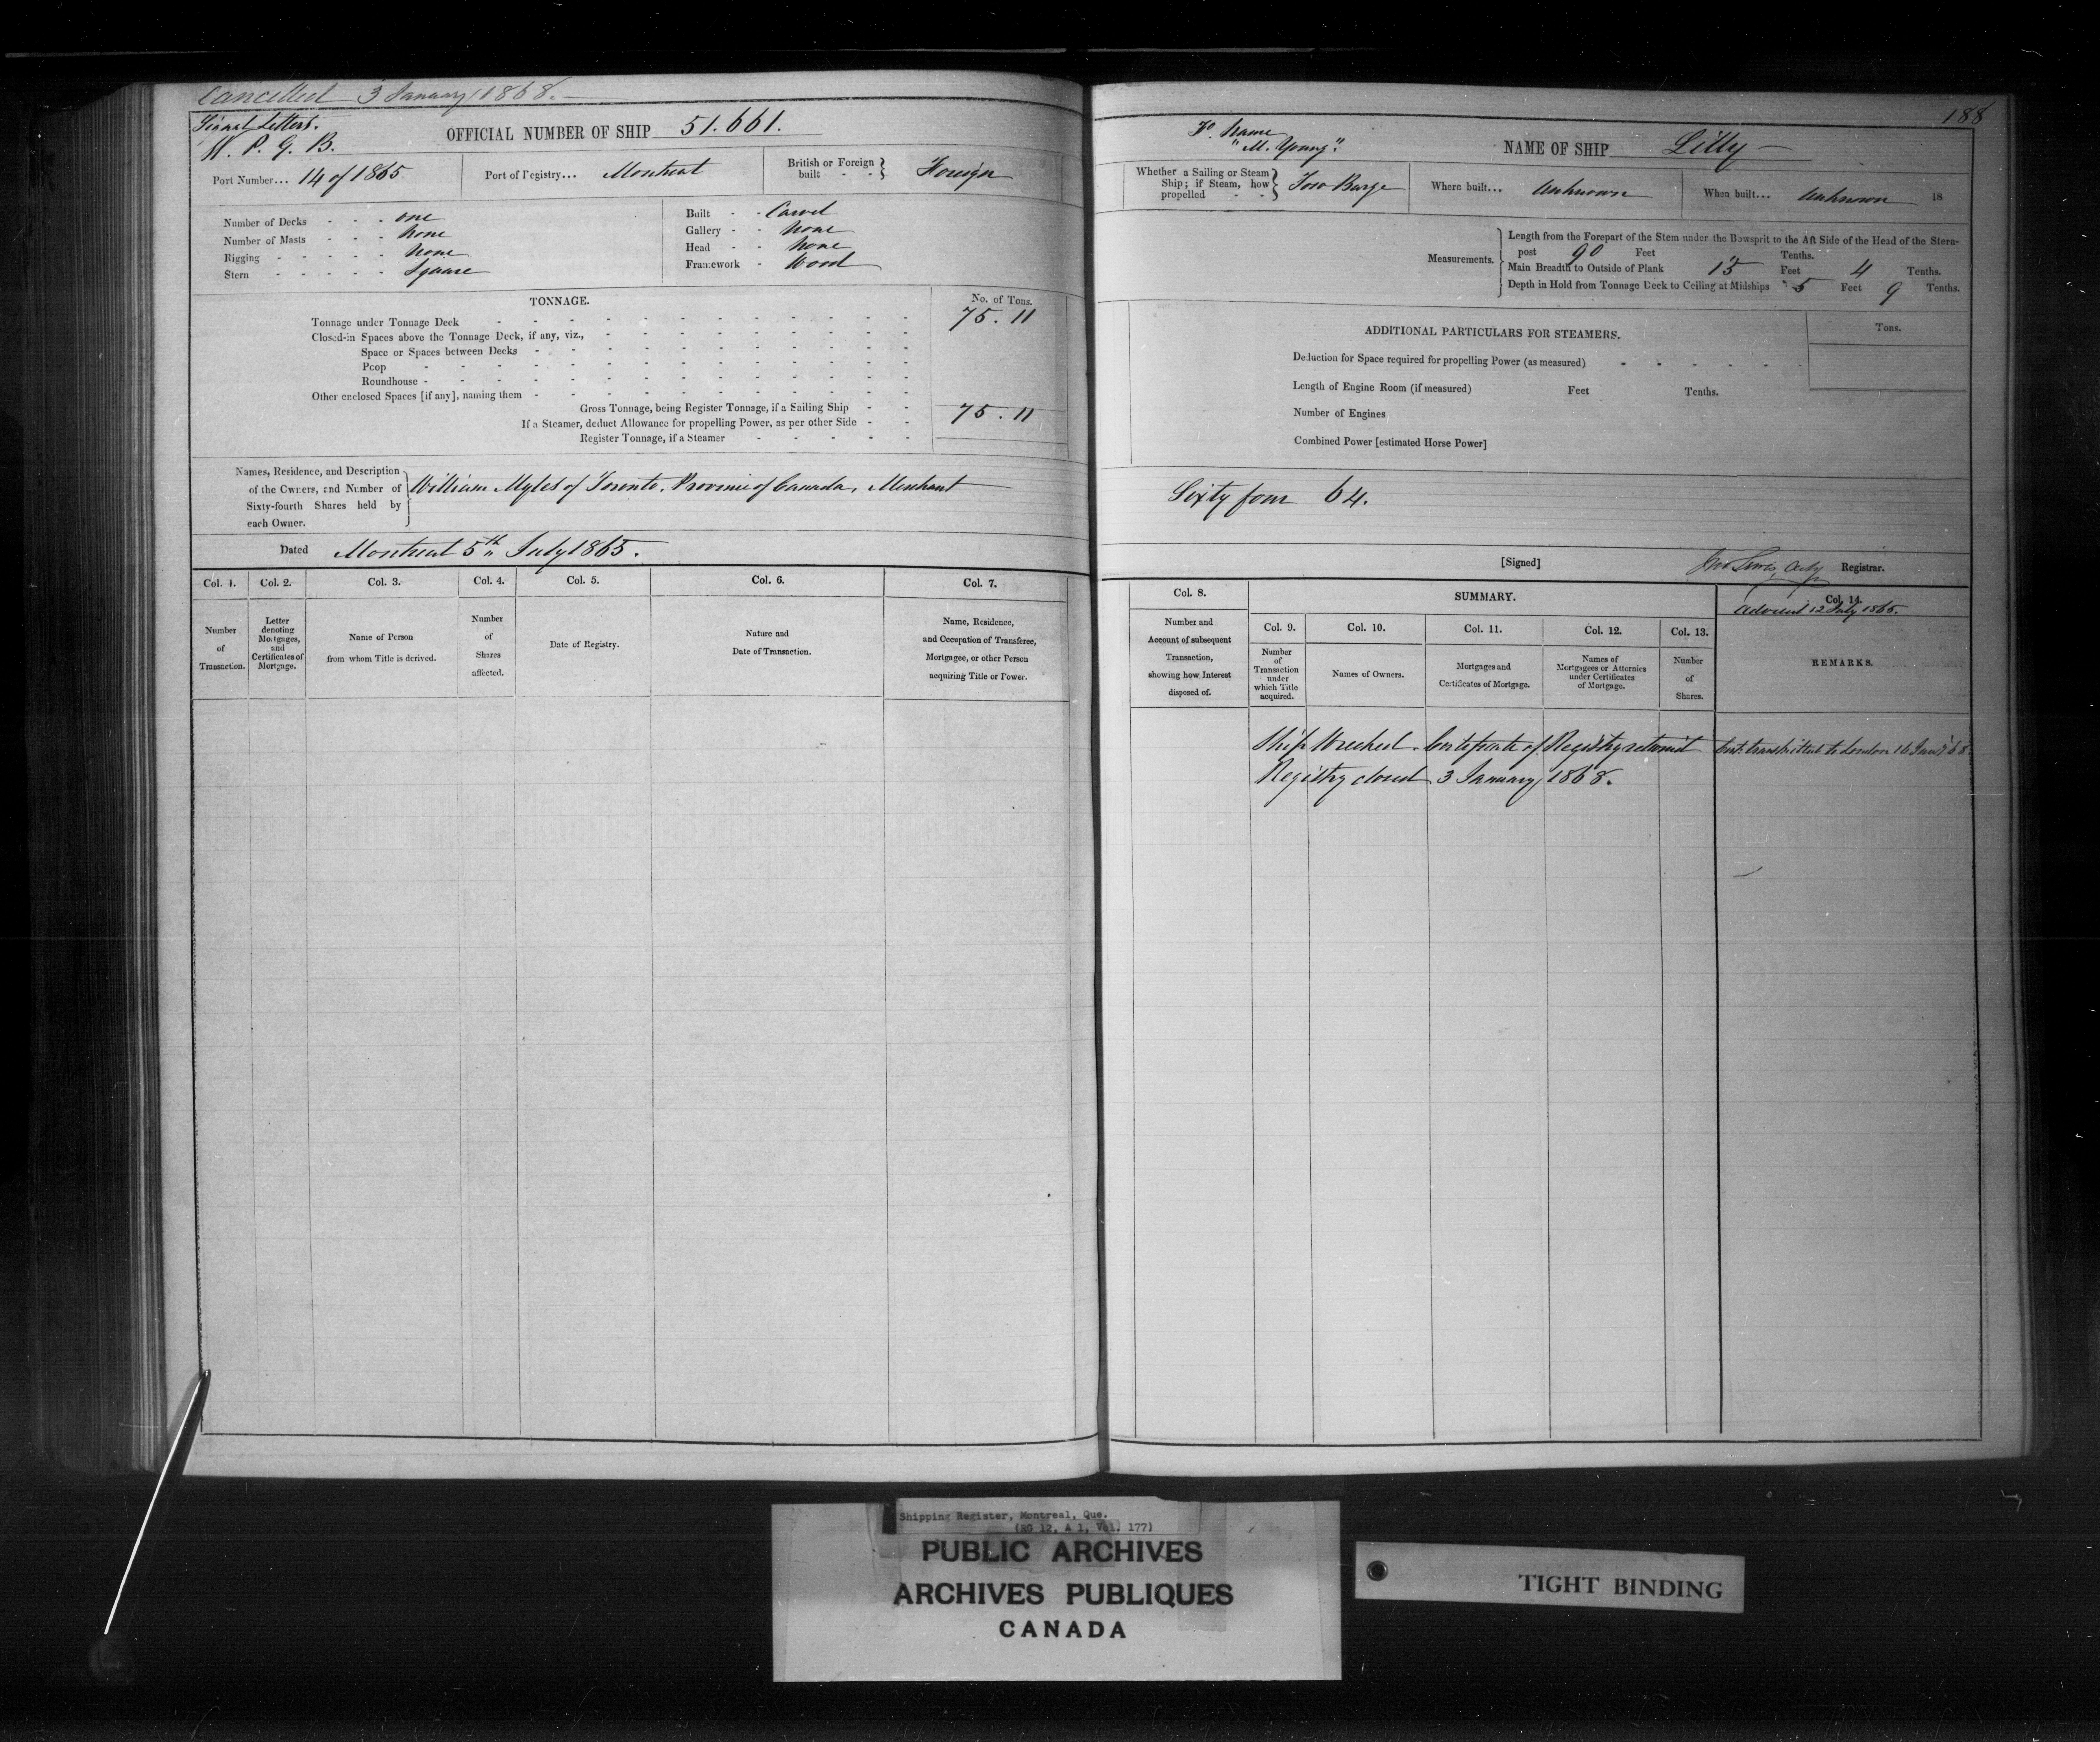 Cancelled 3 January 1868.
Signal Letters.
W. P. G. B.
OFFICIAL NUMBER OF SHIP 51.661.
Port Number... 14 of 1865
Port of Registry... Montreal
British or Foreign built - - Foreign
Number of Decks - - - one
Number of Masts - - - None
Rigging - - - - - None
Stern - - - - - Square
Built - - Carvel
Gallery - - None
Head - - None
Framework - Wood
TONNAGE.
No. of Tons.
Tonnage under Tonnage Deck 75.11
Closed-in Spaces above the Tonnage Deck, if any, viz.,
Space or Spaces between Decks
Poop
Roundhouse
Other enclosed Spaces [if any], naming them
Gross Tonnage, being Register Tonnage, if a Sailing Ship 75.11
If a Steamer, deduct Allowance for propelling Power, as per other Side
Register Tonnage, if a Steamer
Names, Residence, and Description
of the Owners, and Number of
Sixty-fourth Shares held by
each Owner.
William Myles of Toronto, Province of Canada, Merchant
Dated Montreal 5th July 1865.
Col. 1.
Number
of
Transaction.
Col. 2.
Letter
denoting
Mortgages,
and
Certificates of
Mortgage.
Col. 3.
Name of Person
from whom Title is derived.
Col. 4.
Number
of
Shares
affected.
Col. 5.
Date of Registry.
Col. 6.
Nature and
Date of Transaction.
Col. 7.
Name, Residence,
and Occupation of Transferee,
Mortgagee, or other Person
acquiring Title or Power.
188
Name
"M. Young".
NAME OF SHIP Lilly
Whether a Sailing or Steam
Ship; if Steam, how
propelled - - Tow Barge
Where built... Unknown
When built... Unknown 18
Measurements.
Length from the Forepart of the Stem under the Bowsprit to the Aft Side of the Head of the Stern-
post 90 Feet Tenths.
Main Breadth to Outside of Plank 15 Feet 4 Tenths.
Depth in Hold from Tonnage Deck to Ceiling at Midships 5 Feet 9 Tenths.
ADDITIONAL PARTICULARS FOR STEAMERS.
Tons.
Deduction for Space required for propelling Power (as measured)
Length of Engine Room (if measured) Feet Tenths.
Number of Engines
Combined Power [estimated Horse Power]
Sixty four 64.
[Signed] Registrar.
Col. 8.
Number and
Account of subsequent
Transaction,
showing how Interest
disposed of.
SUMMARY.
Col. 9.
Number
of
Transaction
under
which Title
acquired.
Col. 10.
Names of Owners.
Col. 11.
Mortgages and
Certificates of Mortgage.
Col. 12.
Names of
Mortgagees or Attornies
under Certificates
of Mortgage.
Col. 13.
Number
of
Shares.
Col. 14.
12 July 1865.
REMARKS.
Ship Wrecked. Certificate of Registry returned Cert. transmitted to London 16 Jan 68
Registry closed 3 January 1868.
Shipping Register, Montreal, Que.
(RG 12, A 1, Vol. 177)
PUBLIC ARCHIVES
ARCHIVES PUBLIQUES
CANADA
TIGHT BINDING